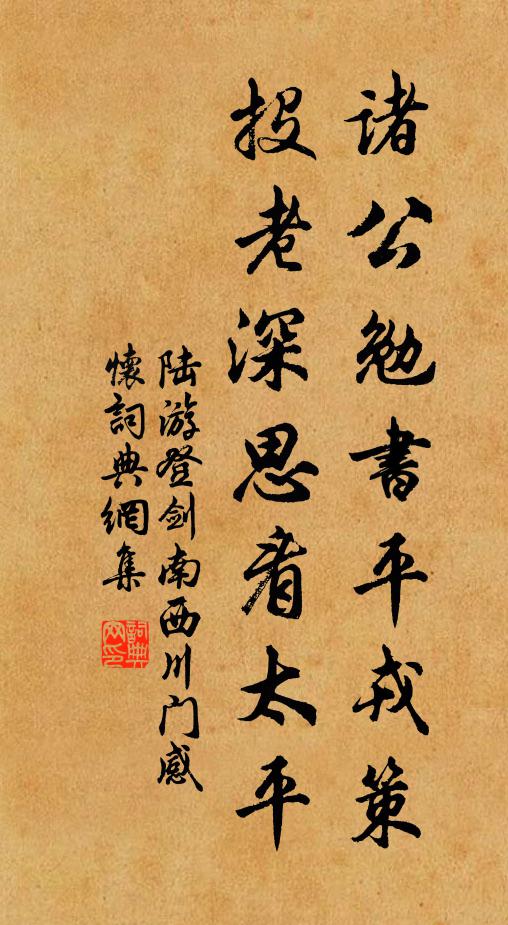 諸公勉書平戎策
投老深思看太平
陆游登剑南西川门感
懷詞典網集
詞典
网印